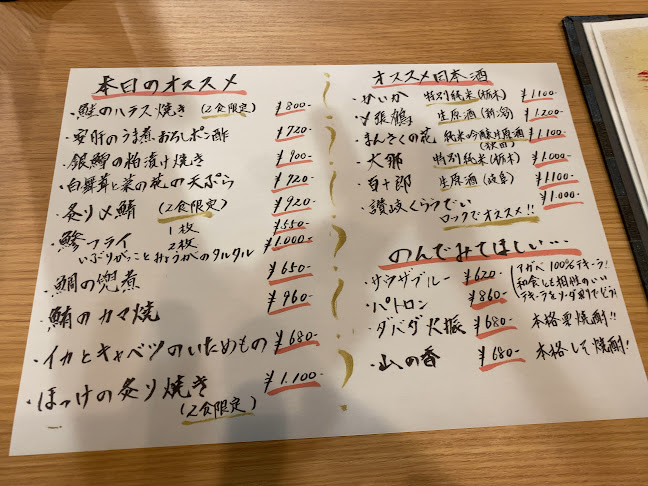 本日のオススメ
・鮭のハラス焼き (2食限定) ¥800-
・安肝のうま煮おろしポン酢 ¥720-
・銀鱈の粕漬け焼き ¥900-
・白舞茸と菜の花の天ぷら ¥720-
・炙り〆鯖 (2食限定) ¥920-
・鯵フライ 1枚 ¥550-
2枚 ¥1.000-
いぶりがっことみょうがのタルタル
・鯛の兜煮 ¥650-
・鮪のカマ焼 ¥960-
・イカとキャベツのいためもの ¥680-
・ほっけの炙り焼き ¥1.100-
(2食限定)
オススメ日本酒
・かいか 特別純米(栃木) ¥1.100-
・〆張鶴 生原酒(新潟) ¥1.200-
・まんさくの花 純米吟醸生原酒 ¥1.100-
(秋田)
・大那 特別純米(栃木) ¥1.000-
・百十郎 生原酒(岐阜) ¥1.100-
・讃岐くらうでぃ ¥1.000-
ロックでオススメ!!
のんでみてほしい…
・サウザブルー ¥620-
アガベ100%テキーラ!
和食とも相性のいい
テキーラをソーダ割でどうぞ
・パトロン ¥860-
・ダバダ火振 ¥680- 本格栗焼酎!!
・山の香 ¥680- 本格しそ焼酎!